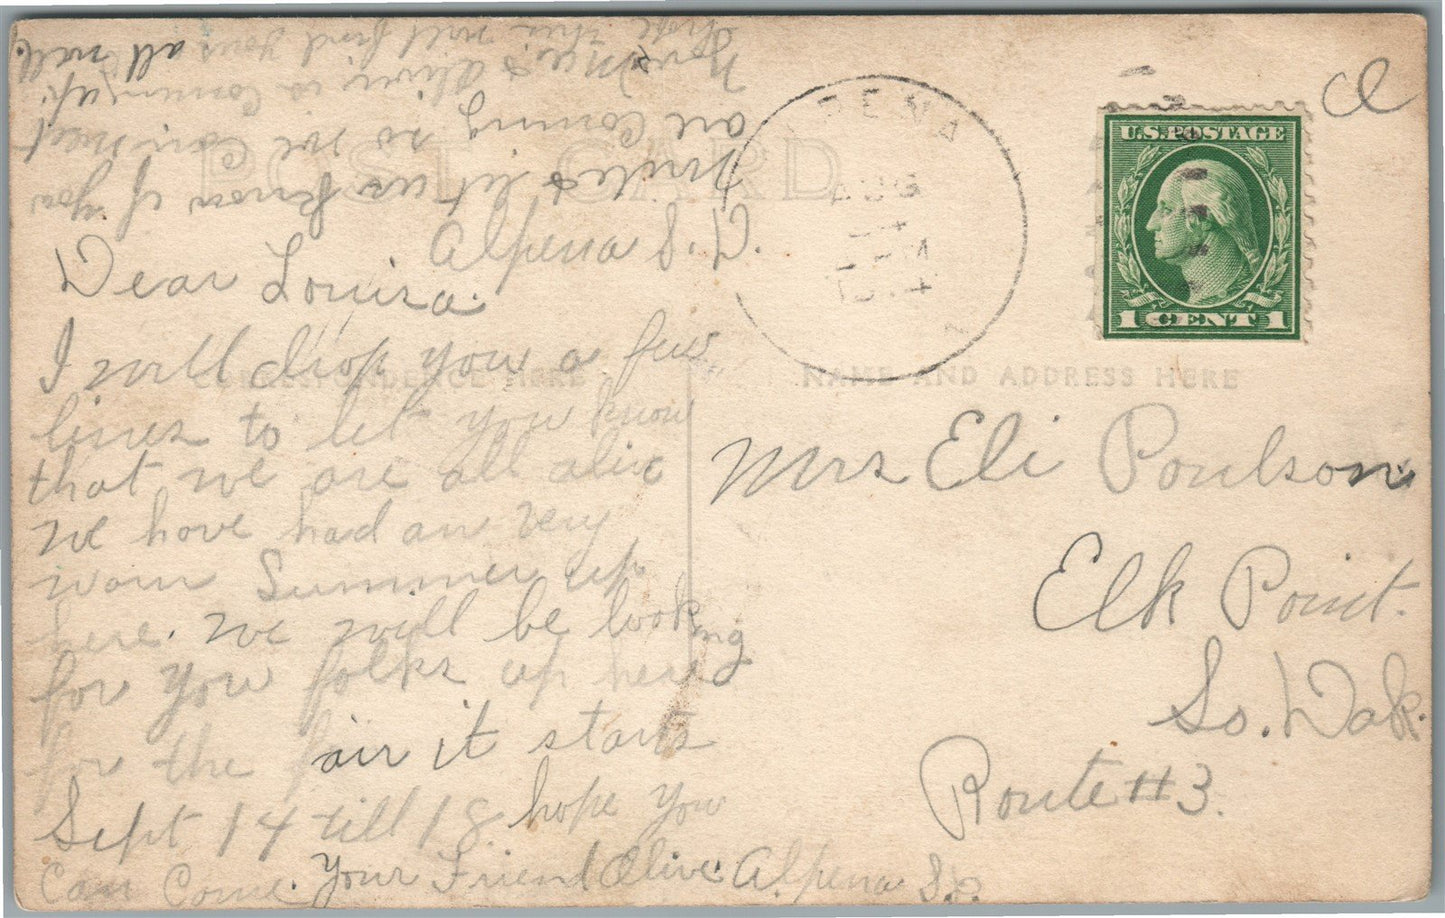 POST CARD
Alpena S. D.
Dear Louisa.
I will drop you a few
lines to let you know
that we are all alive
we have had an very
warm Summer up
here. we will be looking
for you folks up here
for the fair it starts
Sept 14 till 18 hope you
Can Come. Your Friend Olive. Alpena S.D.
write & let us know if you
are Coming so we can meet
you. Mrs Olive is Coming up.
hope this will find yous all well.
CORRESPONDENCE HERE
PENA
AUG
14
U.S. POSTAGE
1 CENT 1
NAME AND ADDRESS HERE
Mrs Eli Poulson
Elk Point.
So. Dak.
Route # 3.